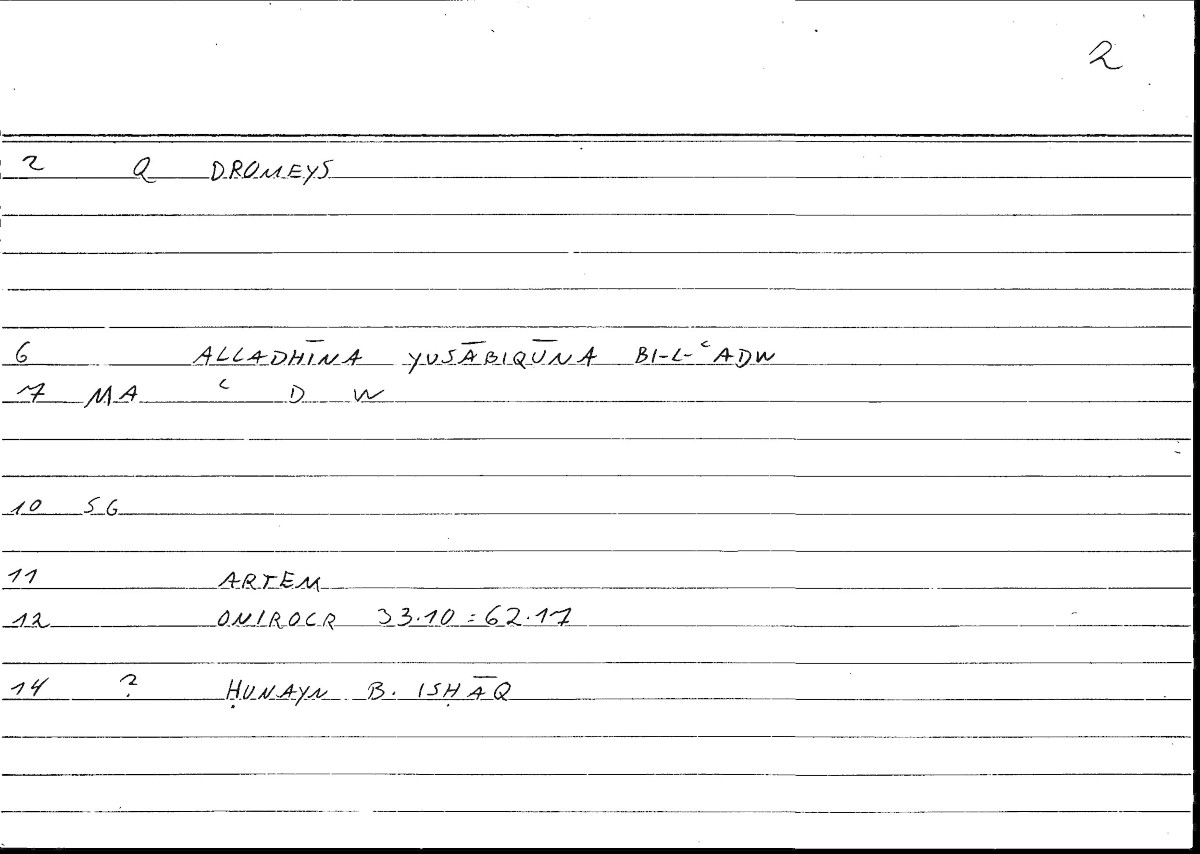 2
2 Q DROMEYS
6 ALLADHĪNA YUSĀBIQŪNA BI-L-ʿADW
7 MA ʿ D W
10 SG
11 ARTEM
12 ONIROCR 33.10 = 62.17
14 ? ḤUNAYN B. ISḤĀQ